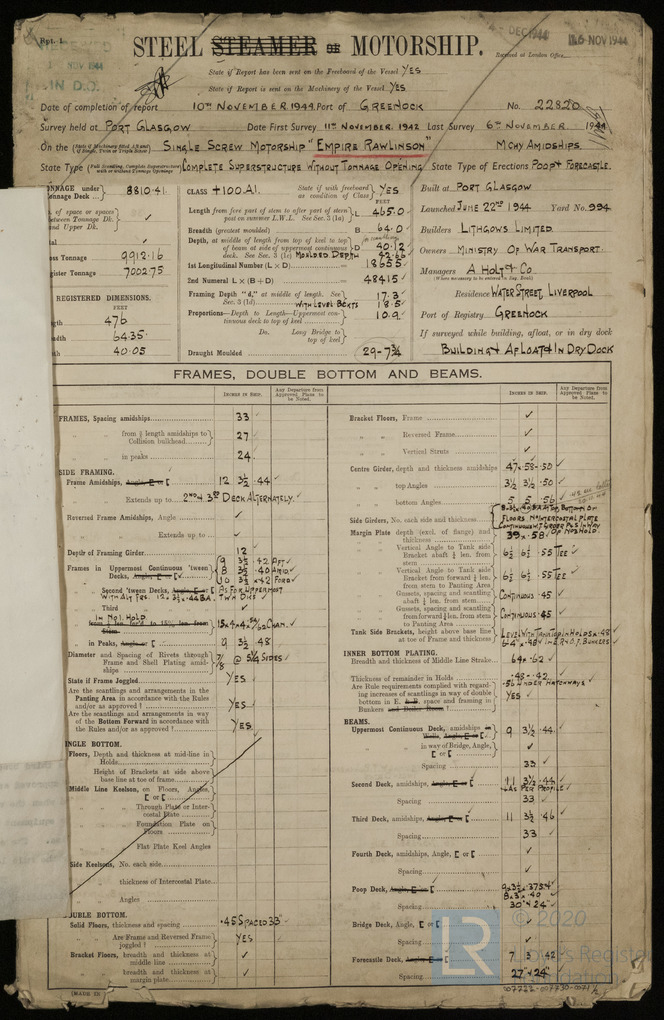 Rpt. 1
DEC 1944
16 NOV 1944
NOV 1944
IN D.O.
STEEL STEAMER OR MOTORSHIP.
Received at London Office
State if Report has been sent on the Freeboard of the Vessel YES
State if Report is sent on the Machinery of the Vessel YES
Date of completion of report 10TH NOVEMBER 1944 Port of GREENOCK No. 22820
Survey held at PORT GLASGOW Date First Survey 11TH NOVEMBER. 1942 Last Survey 6TH NOVEMBER. 1944
On the SINGLE SCREW MOTORSHIP "EMPIRE RAWLINSON" MCHY AMIDSHIPS.
State Type COMPLETE SUPERSTRUCTURE WITHOUT TONNAGE OPENING State Type of Erections POOP & FORECASTLE.
TONNAGE under Tonnage Deck 8810.41
of space or spaces between Tonnage Dk. and Upper Dk.
Total
Gross Tonnage 9912.16
Register Tonnage 7002.75
REGISTERED DIMENSIONS.
FEET
Length 476
Breadth 64.35
Depth 40.05
CLASS +100A1. State if with freeboard as condition of Class YES
FEET
Length from fore part of stem to after part of stern post on summer L.W.L. See Sec. 3 (1a) L 465.0
Breadth (greatest moulded) B 64.0
Depth, at middle of length from top of keel to top of beam at side of uppermost continuous deck. See Sec. 3 (1c) D 40.12
MOULDED DEPTH 42.66
1st Longitudinal Number (L × D) 18655
2nd Numeral L × (B + D) 48415
Framing Depth "d," at middle of length. See Sec. 3 (1d) 17.3
WITH LEVEL BCKTS 18.5
Proportions—Depth to Length—Uppermost continuous deck to top of keel 10.9
Do. Long Bridge to top of keel
Draught Moulded 29-7¾
Built at PORT GLASGOW
Launched JUNE 22ND 1944 Yard No. 994
Builders LITHGOWS LIMITED.
Owners MINISTRY OF WAR TRANSPORT.
Managers A HOLT & CO
Residence WATER STREET, LIVERPOOL
Port of Registry GREENOCK
If surveyed while building, afloat, or in dry dock
BUILDING & AFLOAT & IN DRY DOCK
FRAMES, DOUBLE BOTTOM AND BEAMS.
INCHES IN SHIP. Any Departure from Approved Plans to be Noted.
FRAMES, Spacing amidships 33
from ⅗ length amidships to Collision bulkhead 27
in peaks 24
SIDE FRAMING.
Frame Amidships, Angle, E or [ 12 3½ .44
Extends up to 2ND & 3RD DECK ALTERNATELY.
Reversed Frame Amidships, Angle
Extends up to
Depth of Framing Girder 12
Frames in Uppermost Continuous 'tween Decks, Angle, E or [ 9 3½ .42 AFT
8 3½ .40 AMID.
10 3½ × .42 FORD
Second 'tween Decks, Angle, E or [ AS FOR UPPERMOST
TWN DKS
Third
IN NO1. HOLD
in Peaks, Angle or [ 9 3½ .48
Diameter and Spacing of Rivets through Frame and Shell Plating amidships 7/8 @ 5¼ SIDES
State if Frame Joggled YES
Are the scantlings and arrangements in the Panting Area in accordance with the Rules and/or as approved? YES
Are the scantlings and arrangements in way of the Bottom Forward in accordance with the Rules and/or as approved? YES
SINGLE BOTTOM.
Floors, Depth and thickness at mid-line in Holds
Height of Brackets at side above base line at toe of frame
Middle Line Keelson, on Floors, Angles, [ or E
Through Plate or Intercostal Plate
Foundation Plate on Floors
Flat Plate Keel Angles
Side Keelsons, No. each side
thickness of Intercostal Plate
Angles
DOUBLE BOTTOM.
Solid Floors, thickness and spacing .45 SPACED 33"
Are Frame and Reversed Frame joggled? YES
Bracket Floors, breadth and thickness at middle line
breadth and thickness at margin plate
(MADE IN
INCHES IN SHIP. Any Departure from Approved Plans to be Noted.
Bracket Floors, Frame
Reversed Frame
Vertical Struts
Centre Girder, depth and thickness amidships 47 × .58-.50
top Angles 3½ 3½ .50
bottom Angles 5 5 .56
Side Girders, No. each side and thickness
FLOORS INTERCOSTAL PLATE
Margin Plate depth (excl. of flange) and thickness 39 × .58
Vertical Angle to Tank side Bracket abaft ¼ len. from stem 6½ 6½ .55 TEE
Vertical Angle to Tank side Bracket from forward ¼ len. from stem to Panting Area 6½ 6½ .55 TEE
Gussets, spacing and scantling abaft ¼ len. from stem CONTINUOUS .45
Gussets, spacing and scantling forward ¼ len. from stem to Panting Area CONTINUOUS .45
Tank Side Brackets, height above base line at toe of Frame and thickness LEVEL WITH TANK TOP IN HOLDS × .48
INNER BOTTOM PLATING.
Breadth and thickness of Middle Line Strake 64 × .62
Thickness of remainder in Holds .48-.42
.56 UNDER HATCHWAYS
Are Rule requirements complied with regarding increases of scantlings in way of double bottom in E. & B. space and framing in Bunkers and Boiler Room? YES
BEAMS.
Uppermost Continuous Deck, amidships 9 3½ .44
in way of Bridge, Angle, E or [
Spacing 33
Second Deck, amidships, Angle, E or [ 11 3½ .44
AS PER PROFILE
Spacing 33
Third Deck, amidships, Angle, E or [ 11 3½ .46
Spacing 33
Fourth Deck, amidships, Angle, E or [
Spacing
Poop Deck, Angle, E or [ 9×3½×.375
8×3×.40
Spacing 30" & 24"
Bridge Deck, Angle, E or [
Spacing
Forecastle Deck, Angle, E or [ 7 3 .42
Spacing 27" & 24"
LR
© 2020
Lloyd's Register
Foundation
007722-007730-0071 ½